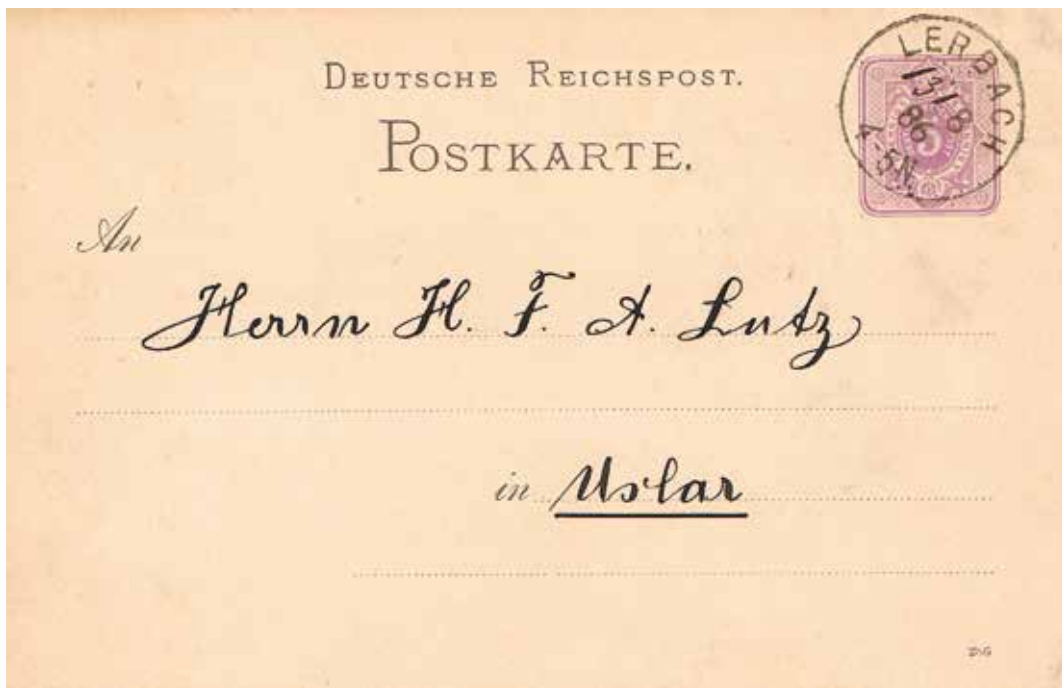 DEUTSCHE REICHSPOST.
POSTKARTE.
LERBACH
13/8
86
4-5N.
5
An
Herrn H. F. A. Lutz
in Uslar